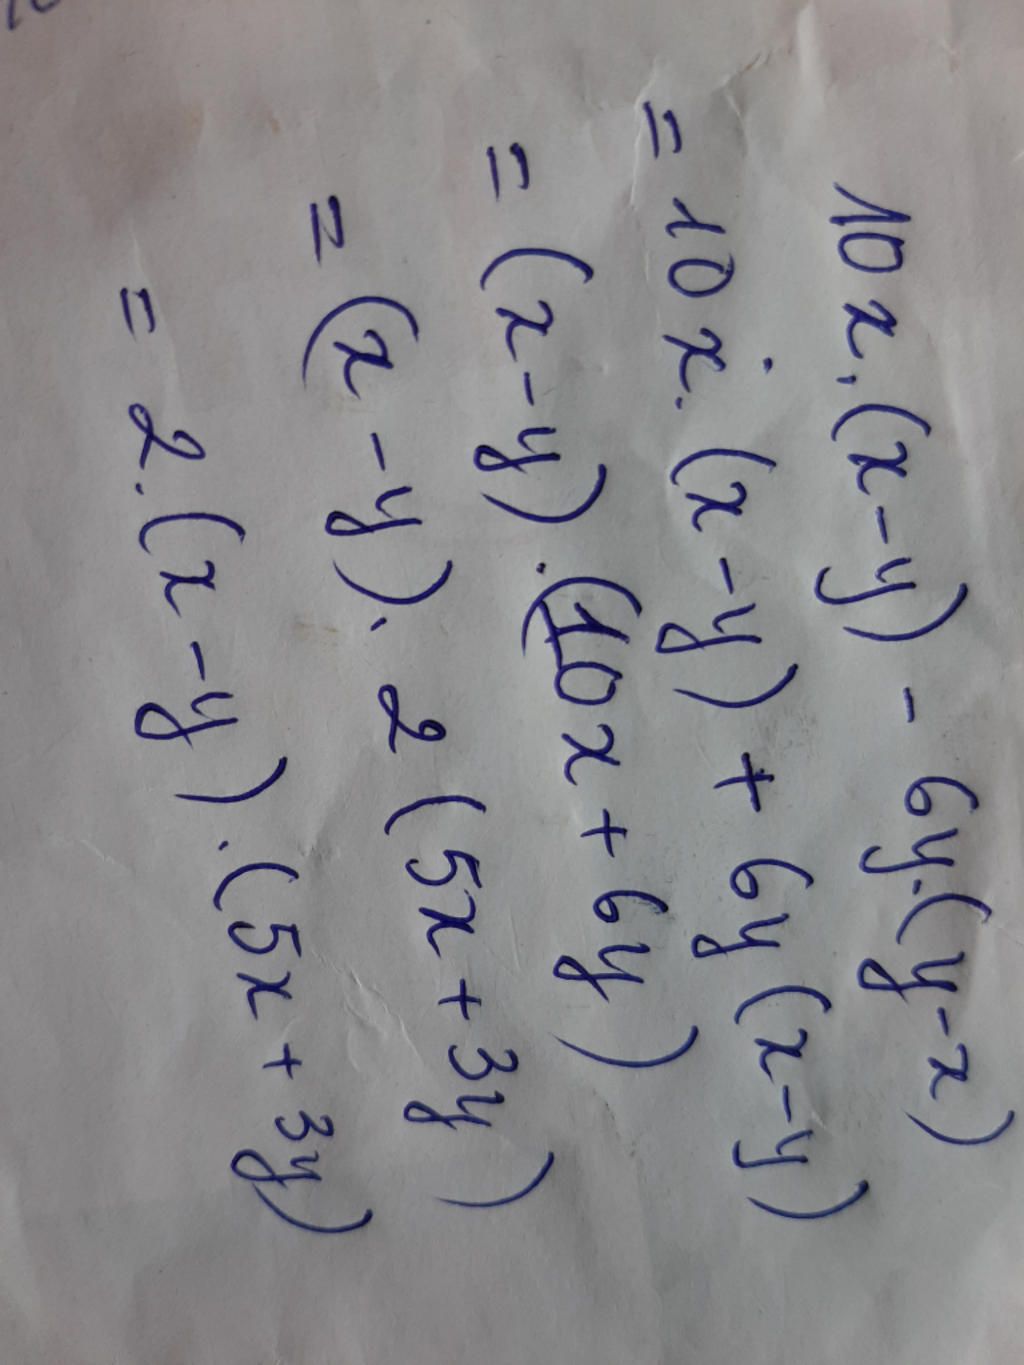 10x.(x-y) - 6y.(y-x)
= 10x.(x-y) + 6y(x-y)
= (x-y).(10x+6y)
= (x-y).2(5x+3y)
= 2.(x-y).(5x+3y)